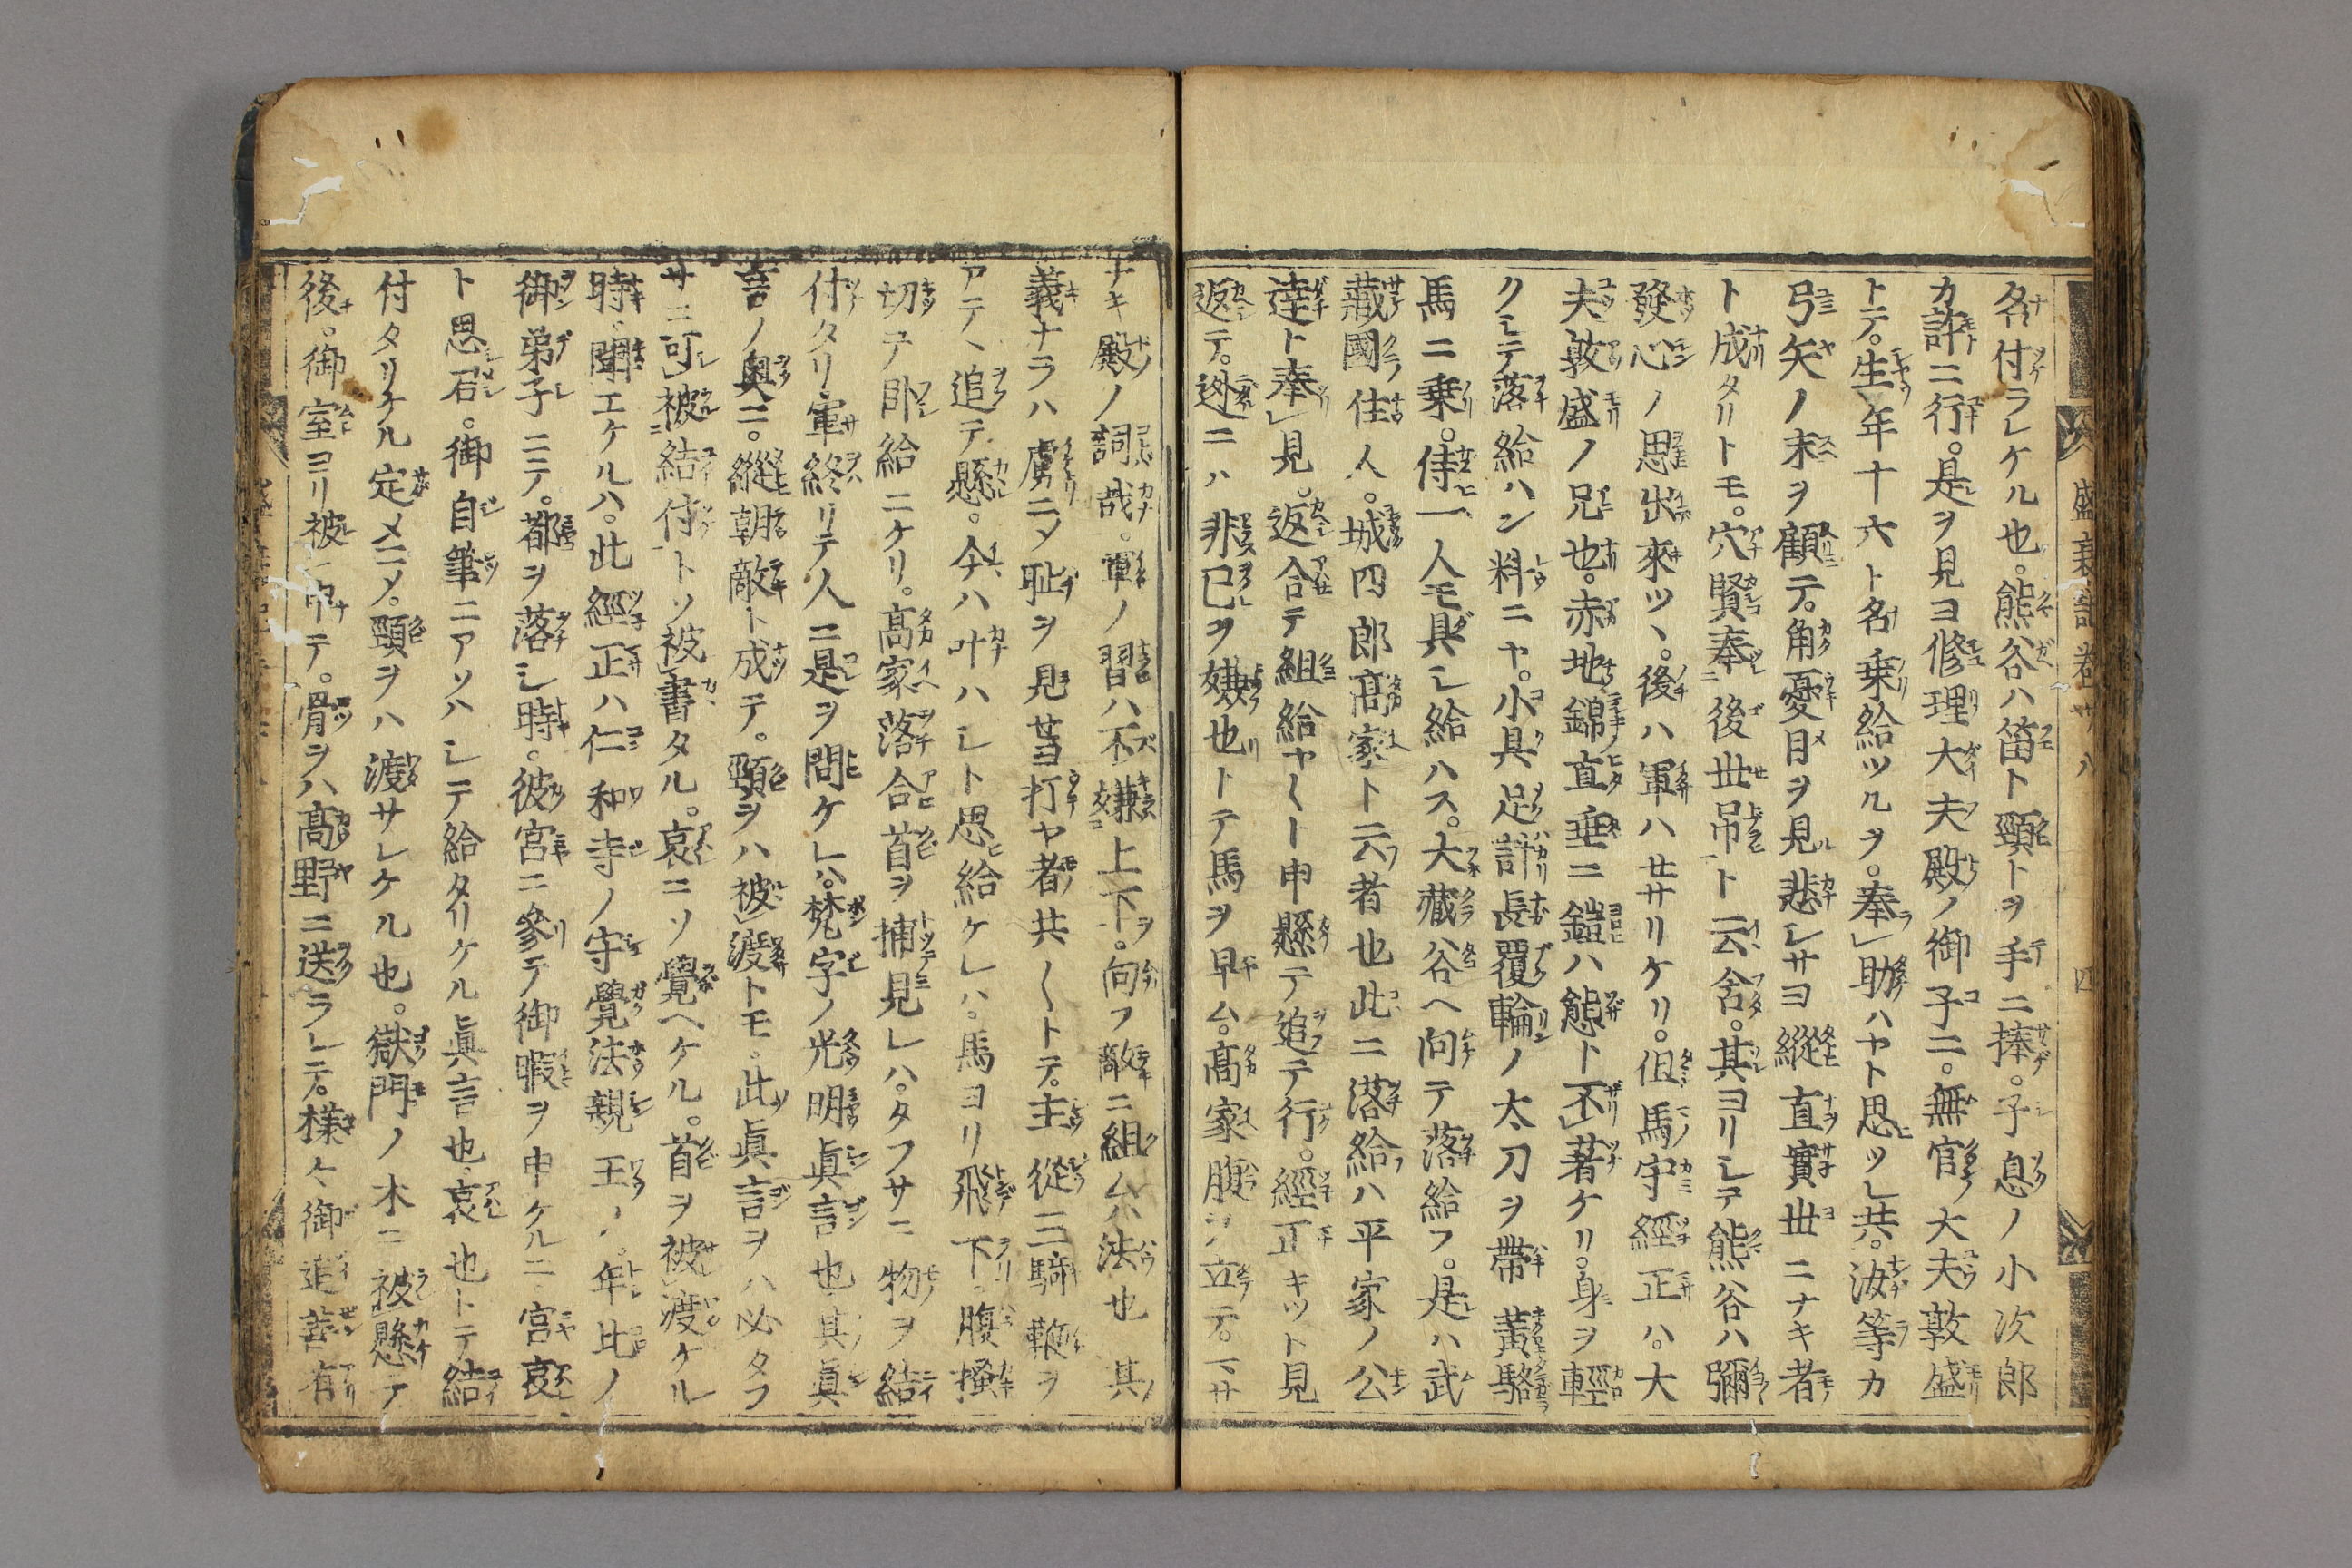 名付ラレケル也。熊谷ハ笛ト頸トヲ手ニ捧。子息ノ小次郎
カ許ニ行。是ヲ見ヨ修理大夫殿ノ御子ニ。無官大夫敦盛
トテ。生年十六ト名乗給ツルヲ。奉助ハヤト思ツレ共。汝等カ
弓矢ノ末ヲ顧テ。角憂目ヲ見悲レサヨ縱直實世ニナキ者
ト成タリトモ。穴賢奉後世吊ト云含。其ヨリシテ熊谷ハ彌
發心ノ思出來ツヽ。後ハ軍ハセサリケリ。但馬守經正ハ。大
夫敦盛ノ兄也。赤地錦直垂ニ鎧ハ態ト不著ケリ。身ヲ輕
クシテ落給ハン料ニヤ。小具足計長覆輪ノ太刀ヲ帶黄駱
馬ニ乗。侍一人モ具シ給ハス。大藏谷ヘ向テ落給フ。是ハ武
藏國住人。城四郎髙家ト云者也此ニ落給ハ平家ノ公
達ト奉見。返合テ組給ヤ〱ト申懸テ追テ行。經正キツト見
返テ。迯ニハ非已ヲ嫌也トテ馬ヲ早ム。髙家腹ヲ立テ。マサ
ナキ殿ノ詞哉。軍ノ習ハ不嫌上下。向フ敵ニ組ムハ法也其
義ナラハ虜ニメ耻ヲ見セヨ打ヤ者共〱トテ。主從三騎鞭ヲ
アテヽ追テ懸。今ハ叶ハシト思給ケレハ。馬ヨリ飛下。腹掻
切テ卧給ニケリ。髙家落合首ヲ捕見レハ。タフサニ物ヲ結
付タリ軍終リテ人ニ是ヲ問ケレハ。梵字ノ光明眞言也其眞
言ノ奥ニ。縱朝敵ト成テ。頸ヲハ被渡トモ。此眞言ヲハ必タフ
サニ可被結付トソ被書タル。哀ニソ覺ヘケル。首ヲ被渡ケル
時聞エケルハ。此經正ハ仁和寺ノ守覺法親王ノ。年比ノ
御弟子ニテ。都ヲ落シ時。彼宮ニ參テ御暇ヲ申ケルニ宮哀
ト思召。御自筆ニアソハシテ給タリケル眞言也哀也トテ結
付タリケル定メニメ。頸ヲハ渡サレケル也。獄門ノ木ニ被懸テ
後。御室ヨリ被申テ。骨ヲハ髙野ニ送ラレテ。樣々御追善有
盛衰記卷卅八 四